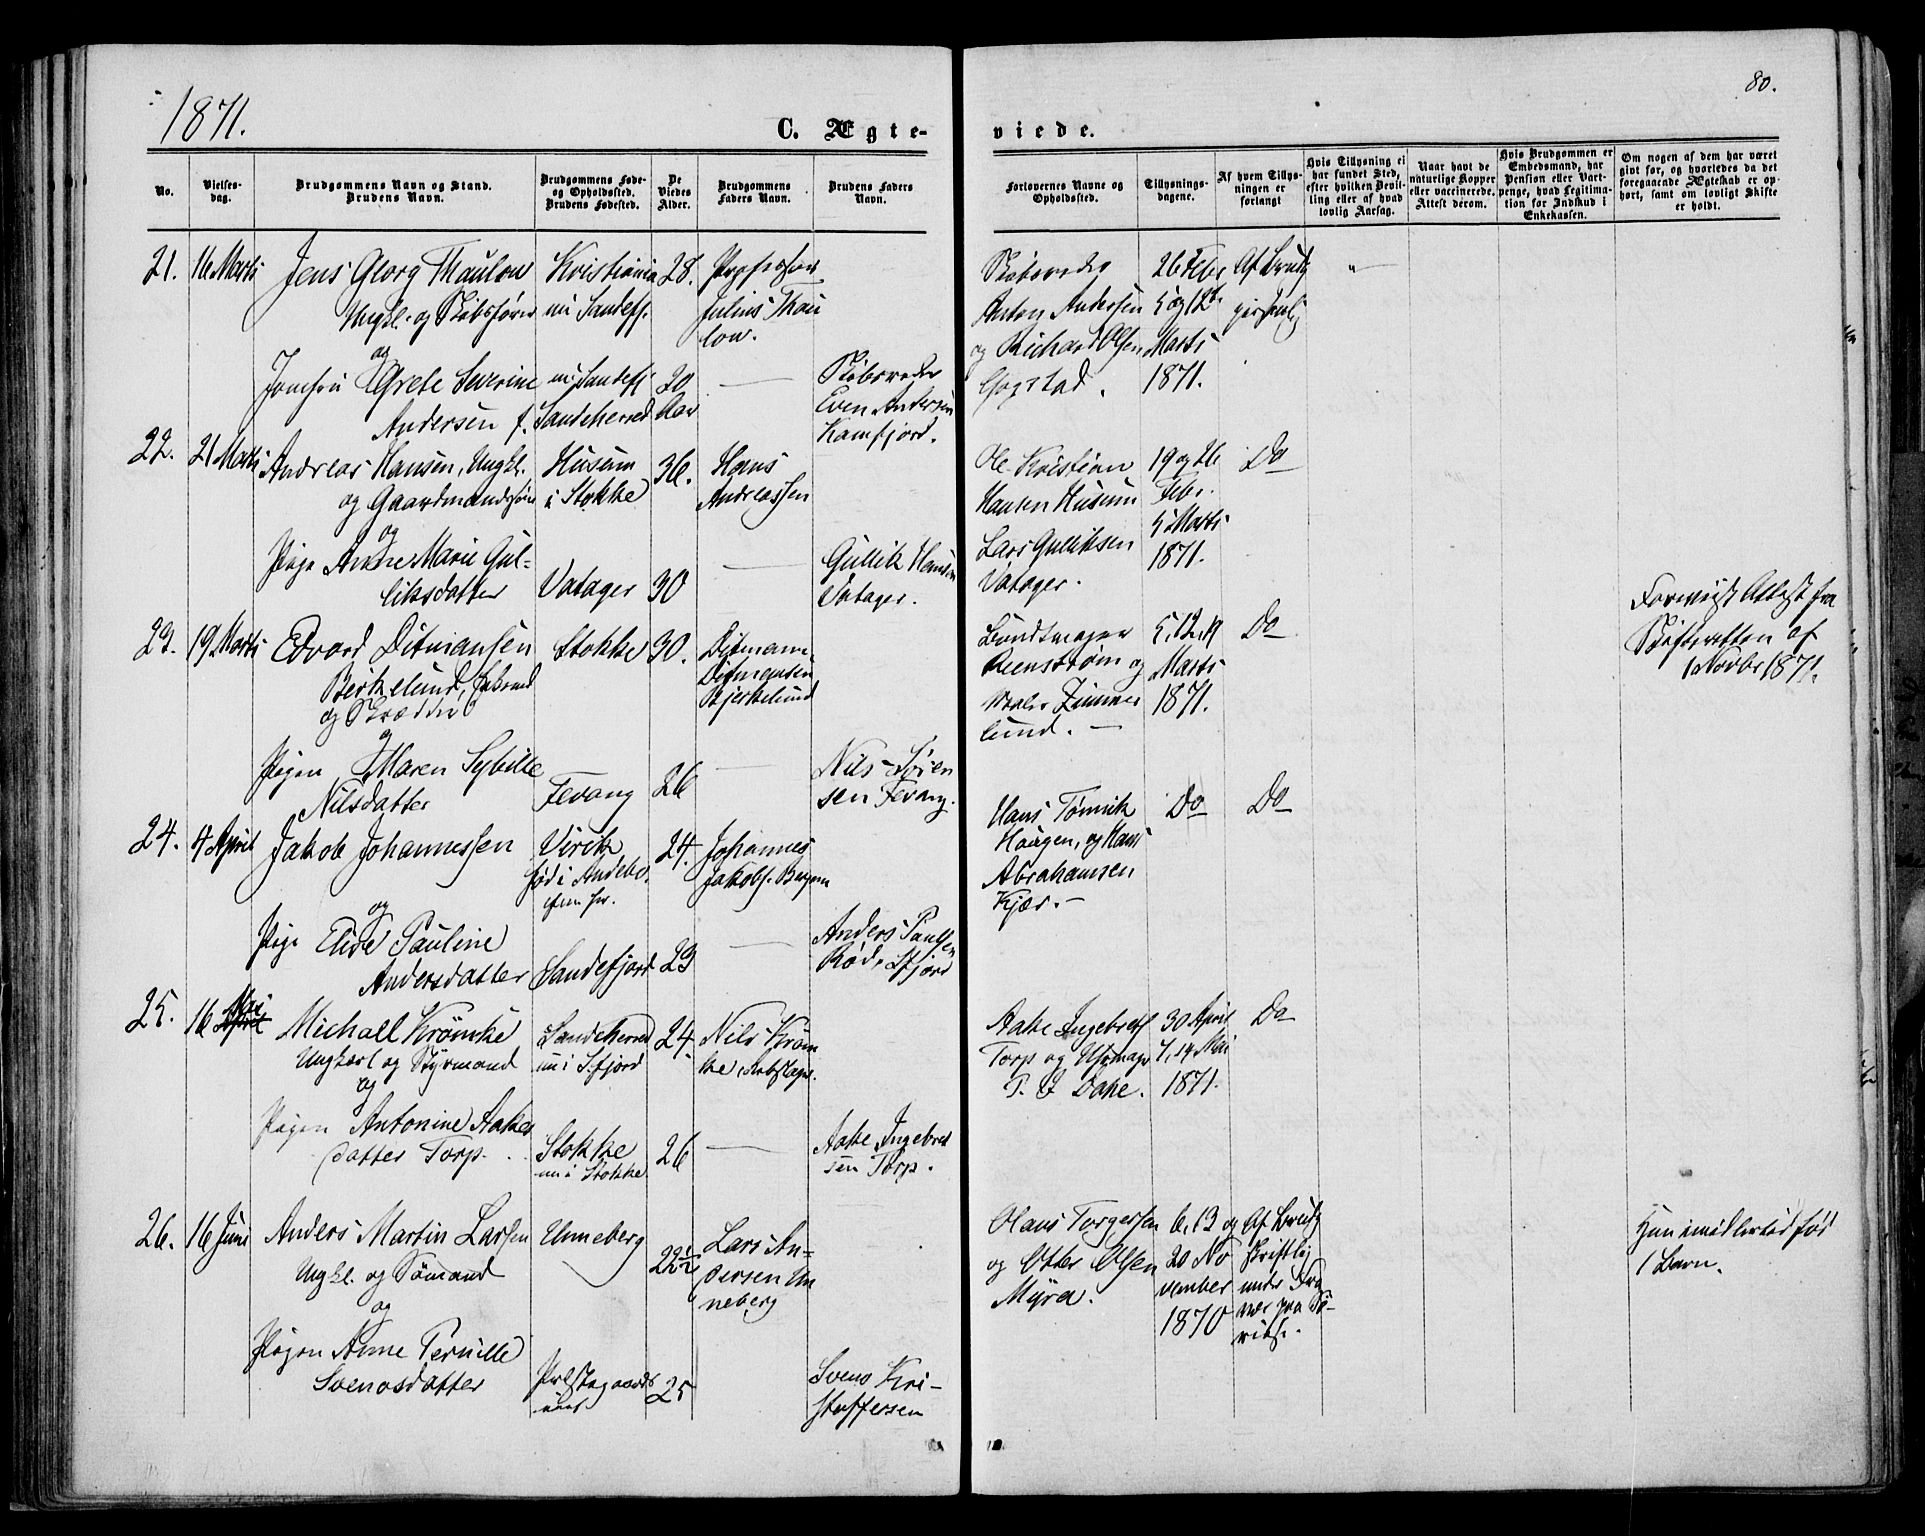 1871.
80.
C. Ægte-
viede.
No.
Vielses-
dag.
Brudgommens Navn og Stand.
Brudens Navn.
Brudgommens Føde-
og Opholdssted.
Brudens Fødested.
De
Viedes
Alder.
Brudgommens
Faders Navn.
Brudens Faders
Navn.
Forlovernes Navne og
Opholdssted.
Tillysnings-
dagene.
Af hvem Tillys-
ningen er
forlangt
Hvis Tillysning ei
har fundet Sted,
efter hvilken Bevil-
ling eller af hvad
lovlig Aarsag.
Naar havt de
naturlige Kopper
eller vaccinerede.
Attest derom.
Hvis Brudgommen er
Embedsmand, har
Pension eller Vart-
penge, hvad Legitima-
tion for Indskud i
Enkekassen.
Om nogen af dem har været
givt før, og hvorledes da det
foregaaende Ægteskab er op-
hørt, samt om lovligt Skifte
er holdt.
21. 16 Marts
Jens Georg Thaulow
Ungkl. og Skibsfører
og
Jomfru Grete Severine
Andersen f.
Kristiania
nu Sandefj.
nu Sandefj
Sandeherred
28.
20
Aar
Professor
Julius Thau
low.
Skibsreder
Even Andersen
Kamfjord.
Skibsreder
Anton Andersen
og Richard Olsen
Gogstad.
26 Febr
5 og 12te
Marts
1871.
Af Brudg
personlig
22. 21 Marts
Andreas Hansen, Ungkl.
og Gaardmandssøn
og
Pige Anne Marie Gul-
liksdatter
Husum
i Stokke
Vatager
36.
30
Hans
Andreassen
Gullik Hansen
Vatager.
Ole Kristian
Hansen Husum
Lars Gulliksen
Vatager.
19 og 26
Febr.
5 Marts
1871.
Do
23. 19 Marts
Edvard Ditmansen
Berkelund,
og Skrædder
og
Pigen Maren Sybille
Nilsdatter
Stokke
Fevang
30.
26
Ditmann
Ditmansen
Bjerkelund
Nils Sören
sen Fevang.
Bundtmager
Reenström og
Zimmer
lund.
5, 12, 19
Marts
1871.
Do
Forevist Attest fra
Skifteretten af
1 Novbr 1871.
24. 4 April
Jakob Johannessen
og
Pige Elise Pauline
Andersdatter
Virik
fød i Andebu
Sandefjord
24.
23
Johannes
Jakobs. Bergan
Anders Paulsen
Röd, Sfjord
Hans Tömmik
Haugen, og Hans
Abrahamsen
Kjær.
Do
Do
25. 16 Mai
Michall Krömke
Ungkarl og Styrmand
og
Pigen Antonine Aakes
datter Torp.
Sandeherred
nu i Sfjord
Stokke
nu i Stokke
24.
26
Nils Kröm
ke,
Aake Ingebret
sen Torp.
Aake Ingebretsf
Torp og Uhrmager
Dahe.
30 April
7, 14 Mai
1871.
Do
26. 16 Juni
Anders Martin Larsen
Ungkl. og Sömand
og
Pigen Anne Pernille
Svensdatter
Unneberg
Prestegaards
22½
25
Lars An-
dersen Un
neberg
Svens Kri-
stoffersen
Olaus Torgersen
og Otter Olsen
Myra.
6, 13 og
20 No
vember
1870
Af Brudg
skriftlig
under
Hun imidlertid fød
1 Barn.